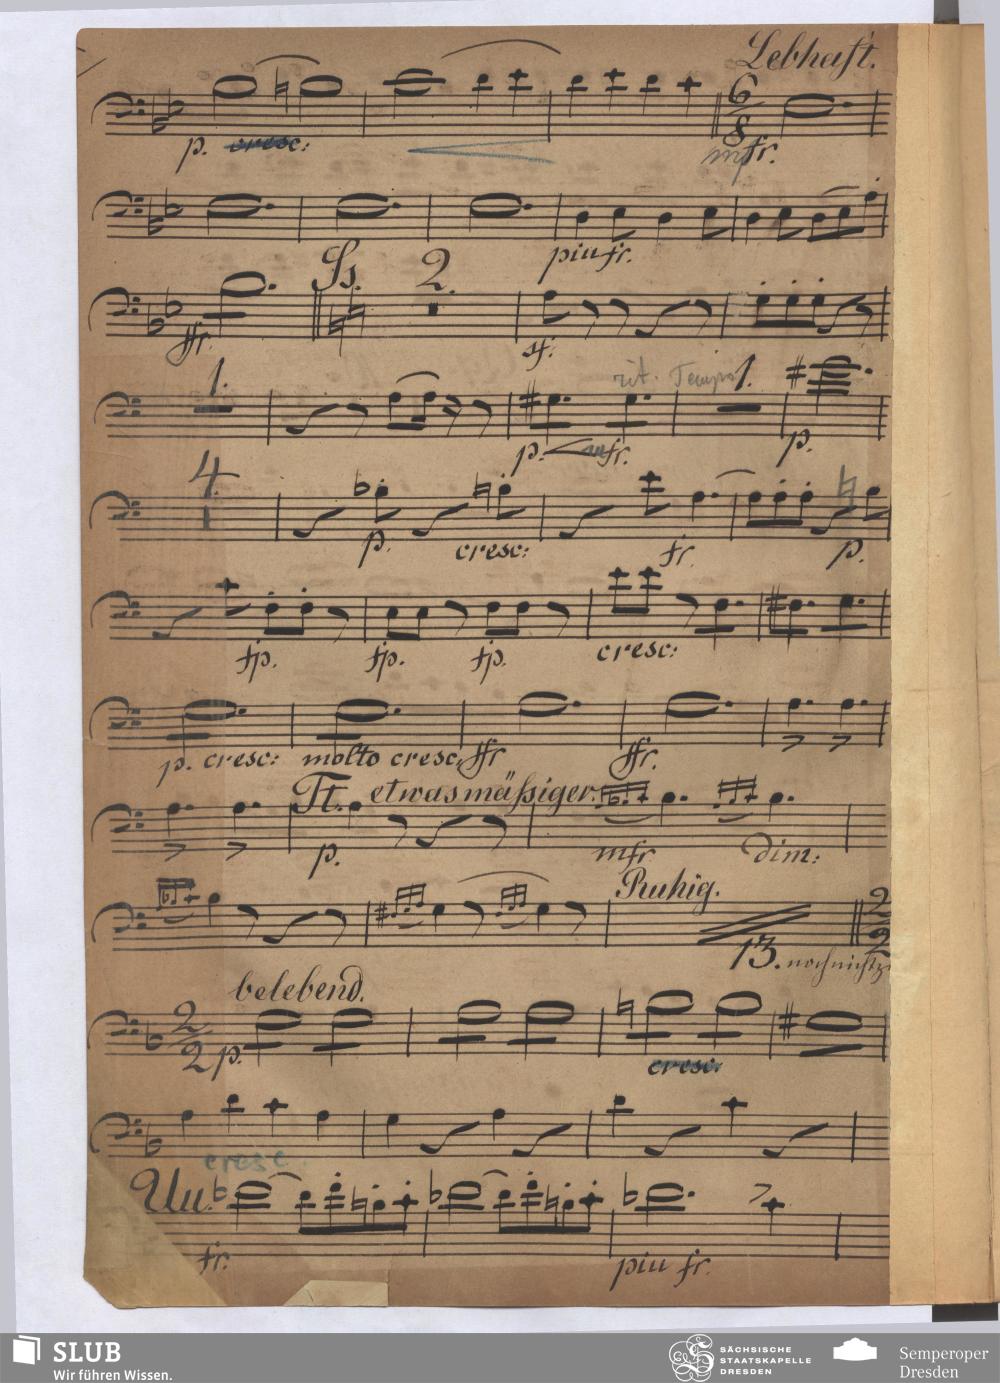 Lebhaft.
6
8
p. cresc:
mfr.
piu fr.
Ss. 2.
ffr. sf.
1. rit. Tempo 1.
p. mfr. p.
4.
p. cresc: fr. p.
fp. fp. fp. cresc:
p. cresc: molto cresc. ffr ffr.
Tt. etwas mäßiger.
p. mfr dim:
Ruhig.
2
2
13. noch nicht
belebend.
2
2 p.
cresc:
cresc.
Uu.
fr. piu fr.
SLUB
Wir führen Wissen.
SÄCHSISCHE
STAATSKAPELLE
DRESDEN
Semperoper
Dresden